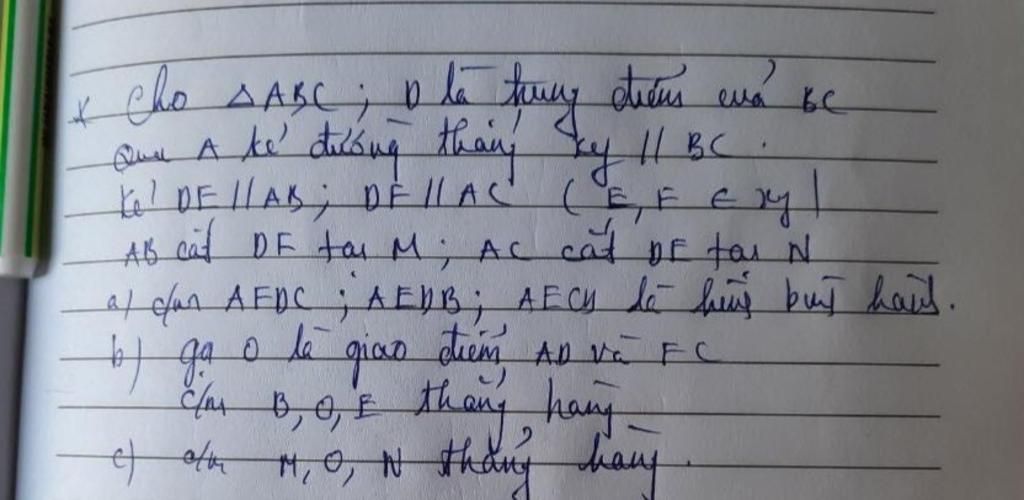 * Cho △ABC ; D là trung điểm của BC
Qua A kẻ đường thẳng xy // BC .
Kẻ DE // AB ; DF // AC ( E, F ∈ xy )
AB cắt DF tại M ; AC cắt DE tại N
a) c/m AFDC ; AEDB ; AECD là hình bình hành .
b) gọi O là giao điểm AD và FC
c/m B, O, E thẳng hàng
c) c/m M, O, N thẳng hàng .